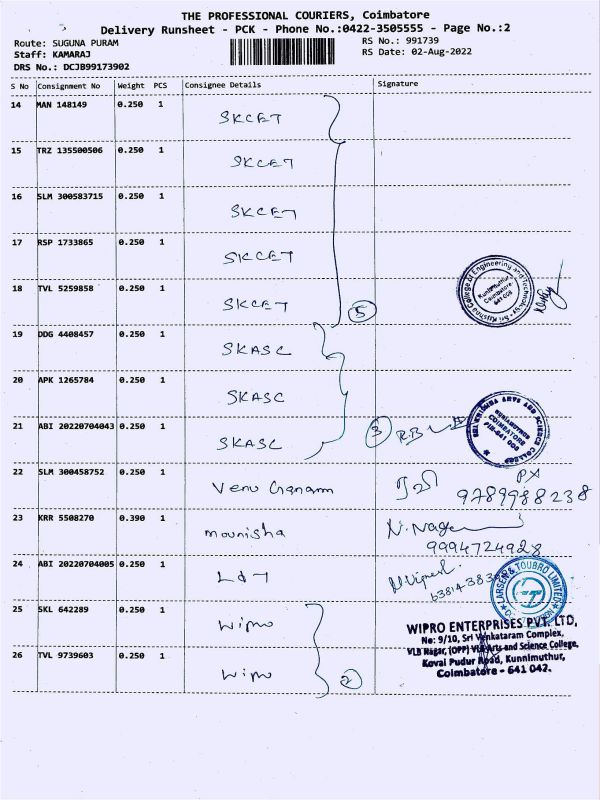 THE PROFESSIONAL COURIERS, Coimbatore
Delivery Runsheet - PCK - Phone No.:0422-3505555 - Page No.:2
Route: SUGUNA PURAM
Staff: KAMARAJ
DRS No.: DCJB99173902
RS No.: 991739
RS Date: 02-Aug-2022
S No Consignment No Weight PCS Consignee Details Signature
14 MAN 148149 0.250 1 SKCET
15 TRZ 135500506 0.250 1 SKCET
16 SLM 300583715 0.250 1 SKCET
17 RSP 1733865 0.250 1 SKCET
18 TVL 5259858 0.250 1 SKCET 5
Sri Krishna College of Engineering and Technology
Kuniamuthur,
Coimbatore-
641 008
19 DDG 4408457 0.250 1 SKASC
20 APK 1265784 0.250 1 SKASC
21 ABI 20220704043 0.250 1 SKASC 3 RB
SRI KRISHNA ARTS AND SCIENCE COLLEGE
KUNIAMUTHUR
COIMBATORE
PIN-641 008
22 SLM 300458752 0.250 1 Venu Ganam
9789988238
23 KRR 5508270 0.390 1 mounisha N. Nage
9994724928
24 ABI 20220704005 0.250 1 L&T
LARSEN & TOUBRO LIMITED
25 SKL 642289 0.250 1 Wipro
26 TVL 9739603 0.250 1 Wipro 2
WIPRO ENTERPRISES PVT. LTD,
No: 9/10, Sri Venkataram Complex,
VLB Nagar, (OPP) VLB Arts and Science College,
Kovai Pudur Road, Kunnimuthur,
Coimbatore - 641 042.